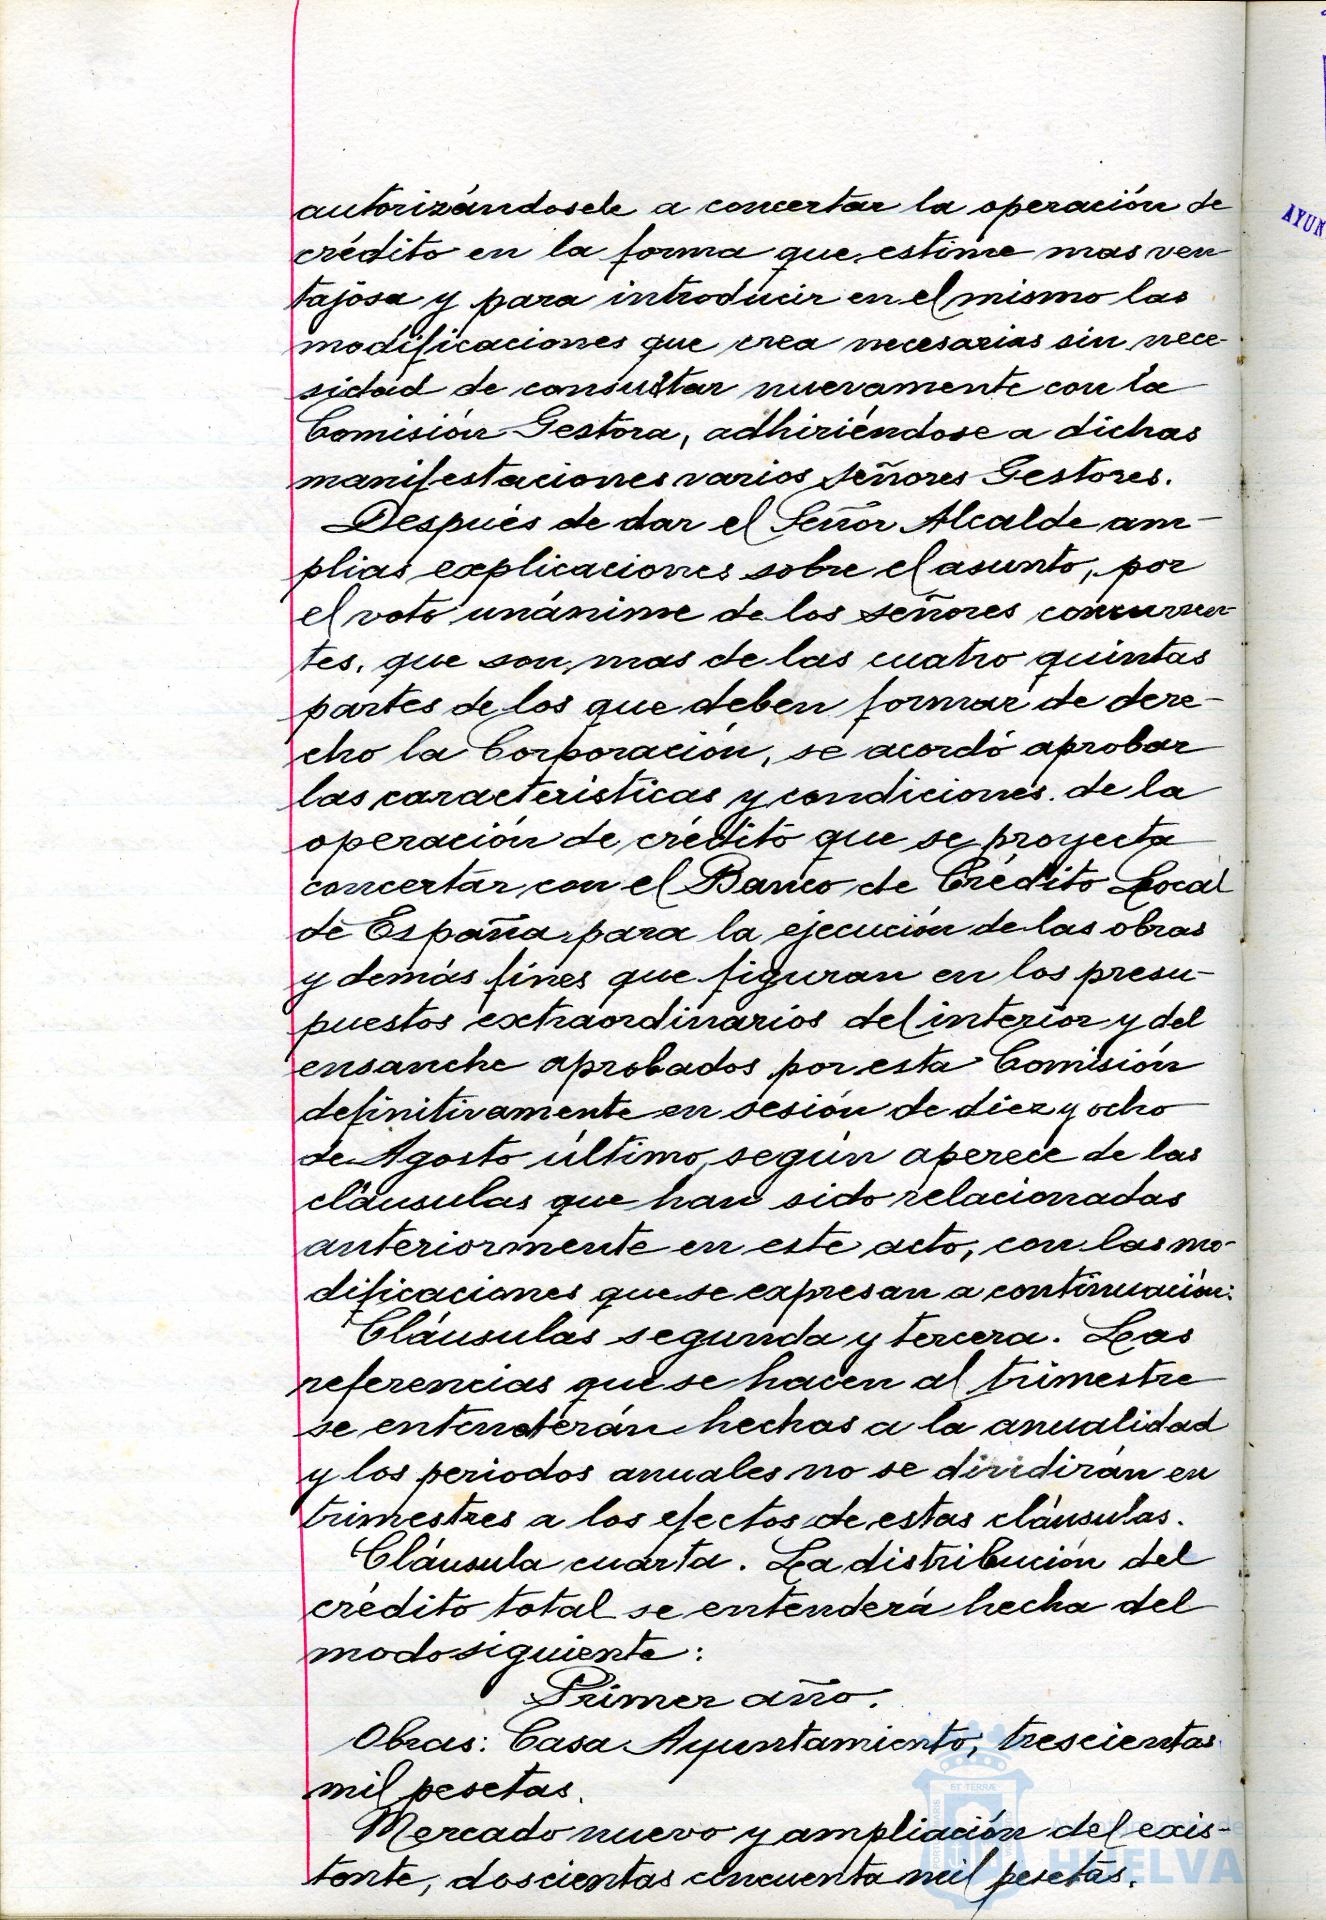 autorizándosele a concertar la operación de
crédito en la forma que estime mas ven
tajosa y para introducir en el mismo las
modificaciones que crea necesarias sin nece-
sidad de consultar nuevamente con la
Comisión Gestora, adhiriéndose a dichas
manifestaciones varios señores Gestores.
Después de dar el Señor Alcalde am-
plias explicaciones sobre el asunto, por
el voto unánime de los señores concurren-
tes, que son mas de las cuatro quintas
partes de los que deben formar de dere-
cho la Corporación, se acordó aprobar
las caracteristicas y condiciones de la
operación de crédito que se proyecta
concertar con el Banco de Crédito Local
de España para la ejecución de las obras
y demás fines que figuran en los presu-
puestos extraordinarios del interior y del
ensanche aprobados por esta Comisión
definitivamente en sesión de diez y ocho
de Agosto último, según aperece de las
cláusulas que han sido relacionadas
anteriormente en este acto, con las mo-
dificaciones que se expresan a continuación:
Cláusulas segunda y tercera. Las
referencias que se hacen al trimestre
se entenderán hechas a la anualidad
y los periodos anuales no se dividirán en
trimestres a los efectos de estas cláusulas.
Cláusula cuarta. La distribución del
crédito total se entenderá hecha del
modo siguiente:
Primer año.
Obras: Casa Ayuntamiento, trescientas
mil pesetas.
Mercado nuevo y ampliación del exis-
tente, doscientas cincuenta mil pesetas.
AYUN
ET TERRÆ
HUELVA